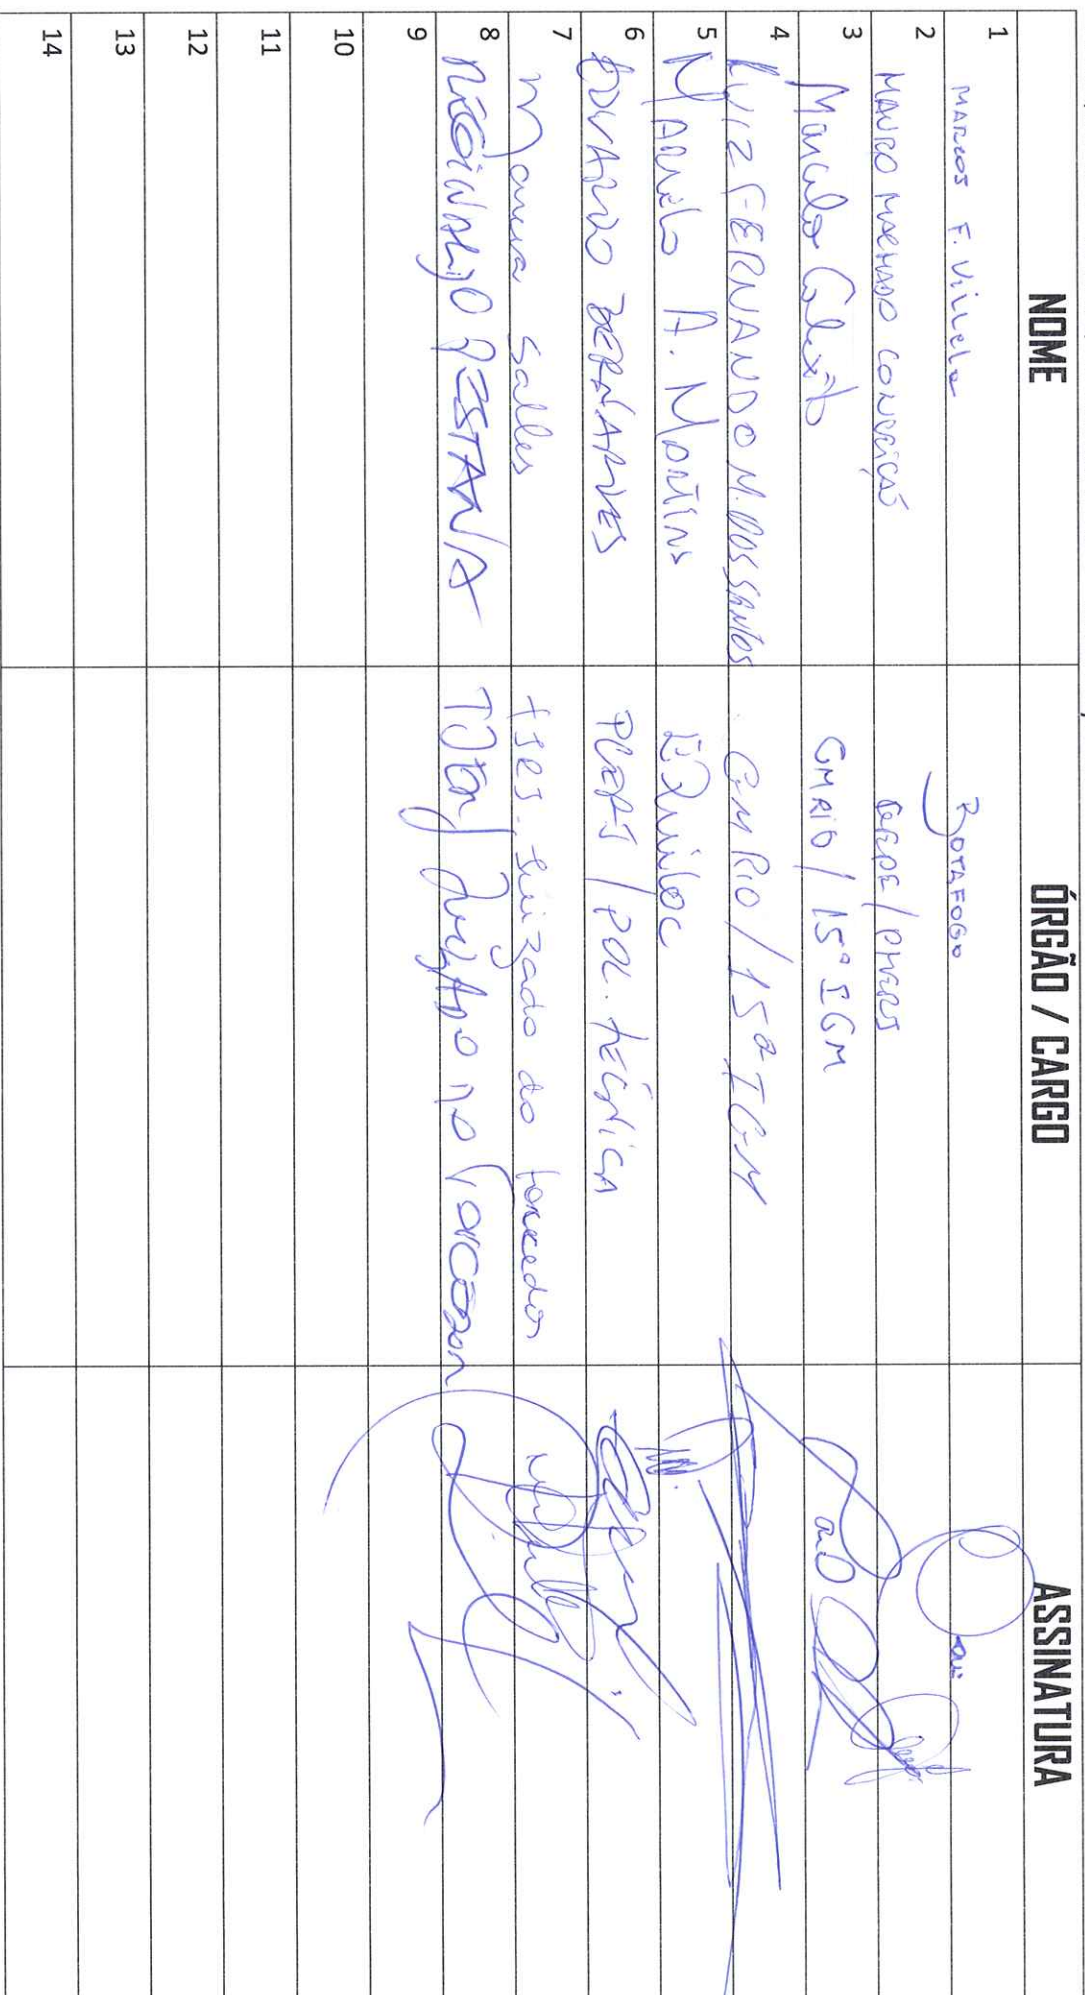 NOME ÓRGÃO / CARGO ASSINATURA
1 MARCOS F. Villela BOTAFOGO
2 MAURO MACHADO CONCEIÇÃO GEPE / PMERJ
3 Marcelo Calixto GMRIO / 15ª IGM
4 LUIZ FERNANDO M. DOS SANTOS GM RIO / 15ª IGM
5 Marcelo A. Martins EQuiloc
6 EDUARDO BERNARDES PCERJ / POL. TÉCNICA
7 Salles TJRJ. Juizado do torcedor
8 REGINALDO PESTANA Juizado no Torcedor
9
10
11
12
13
14